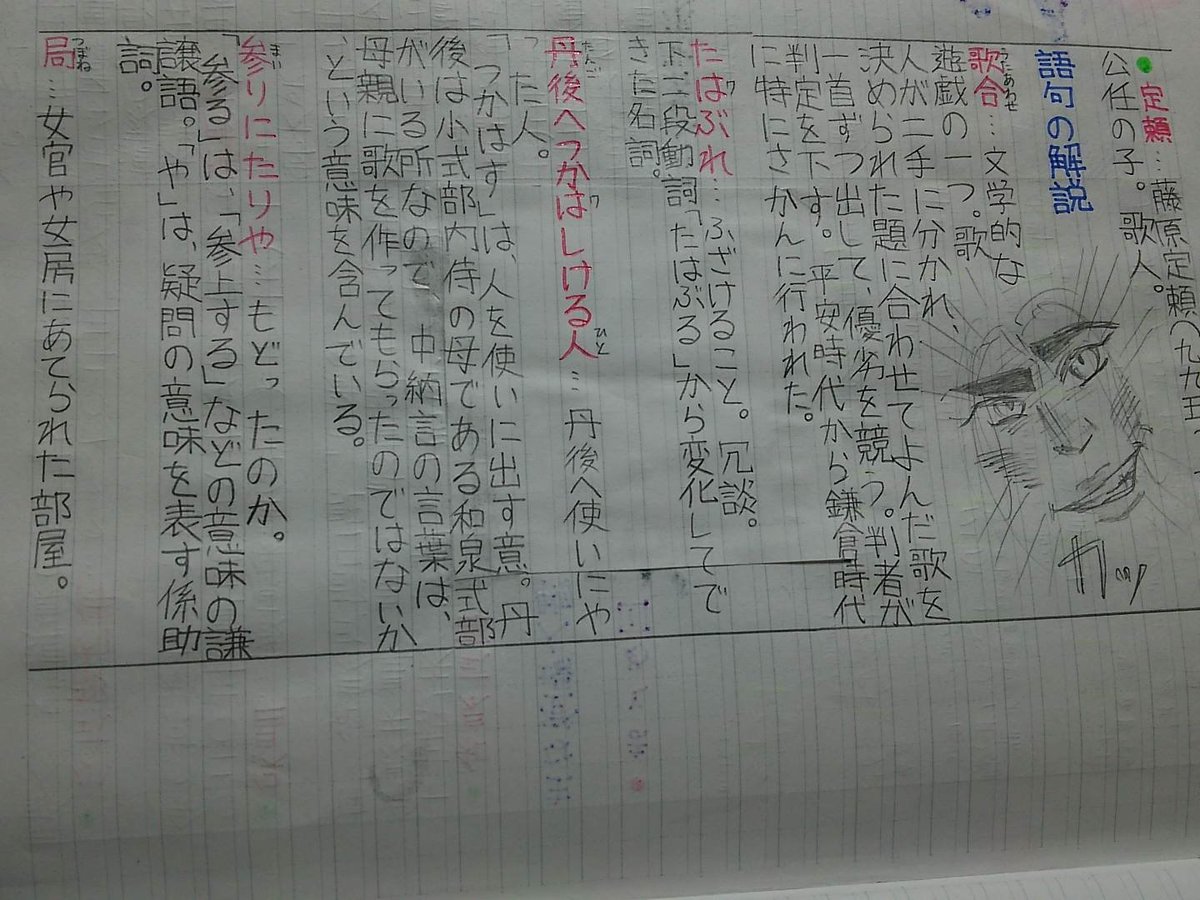 定頼…藤原定頼へ九九五〜
公任の子。歌人。
語句の解説
歌合…文学的な
遊戯の一つ。歌
人が二手に分かれ、
決められた題に合わせてよんだ歌を
一首ずつ出して、優劣を競う。判者が
判定を下す。平安時代から鎌倉時代
に特にさかんに行われた。
たはぶれ…ふざけること。冗談。
下二段動詞「たはぶる」から変化してで
きた名詞。
丹後へつかはしける人…丹後へ使いにや
った人。
「つかはす」は、人を使いに出す意。丹
後は小式部内侍の母である和泉式部
がいる所なので、中納言の言葉は、
母親に歌を作ってもらったのではないか
、という意味を含んでいる。
参りにたりや…もどったのか。
「参る」は、「参上する」などの意味の謙
譲語。「や」は、疑問の意味を表す係助
詞。
局…女官や女房にあてられた部屋。
カッ